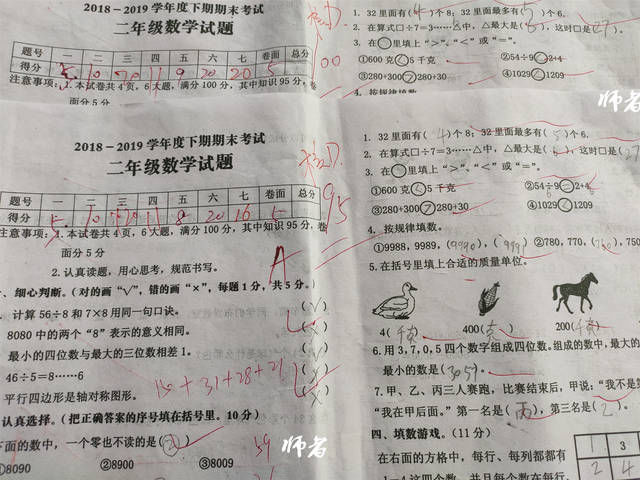 2018-2019学年度下期期末考试
二年级数学试题
题号 一 二 三 四 五 六 七 卷面 总分
得分 5 10 20 11 9 20 20 5
100
注意事项:1.本试卷共4页,6大题,满分100分,其中知识95分,卷
面分5分
1. 32里面有(4)个8;32里面最多有(5)个6。
2. 在算式□÷7=3……△中,△最大是(6),这时□是(27)。
3. 在○里填上“>”、“<”或“=”。
①600克<5千克 ②54÷9○2+4
③280+300>280+30 ④1029<1209
4. 按规律填数。
师者
2018-2019学年度下期期末考试
二年级数学试题
题号 一 二 三 四 五 六 七 卷面 总分
得分 5 10 11 8 20 16 5
95
注意事项:1.本试卷共4页,6大题,满分100分,其中知识95分,卷
面分5分
2.认真读题,用心思考,规范书写。
A
、细心判断。(对的画“√”,错的画“×”,每题1分,共5分。)
计算56÷8和7×8用同一句口诀。 (√)
8080中的两个“8”表示的意义相同。 (×)
最小的四位数与最大的三位数相差1。 (√)
46÷5=8……6 (×)
平行四边形是轴对称图形。 (×)
认真选择。(把正确答案的序号填在括号里。10分)
下面的数中,一个零也不读的是(②)
①8090 ②8900 ③8009
师者
1. 32里面有(4)个8;32里面最多有(5)个6。
2. 在算式□÷7=3……△中,△最大是(6),这时□是(27
3. 在○里填上“>”、“<”或“=”。
①600克<5千克 ②54÷9=2+4
③280+300>280+30 ④1029<1209
4. 按规律填数。
①9988,9989,(9990),(9991) ②780,770,(760),750
5.在括号里填上合适的质量单位。
4(千克) 400(克) 200(千克)
6.用3,7,0,5四个数字组成四位数。组成的数中,最大的
最小的数是(3057)。
7.甲、乙、丙三人赛跑,比赛结束后,甲说:“我不是
“我在甲后面。”第一名是(丙),第三名是(乙)。
四、填数游戏。(11分)
在右面的方格中,每行、每列都都有
1—4这四个数,并且每个数在每行、
1 3
2 4